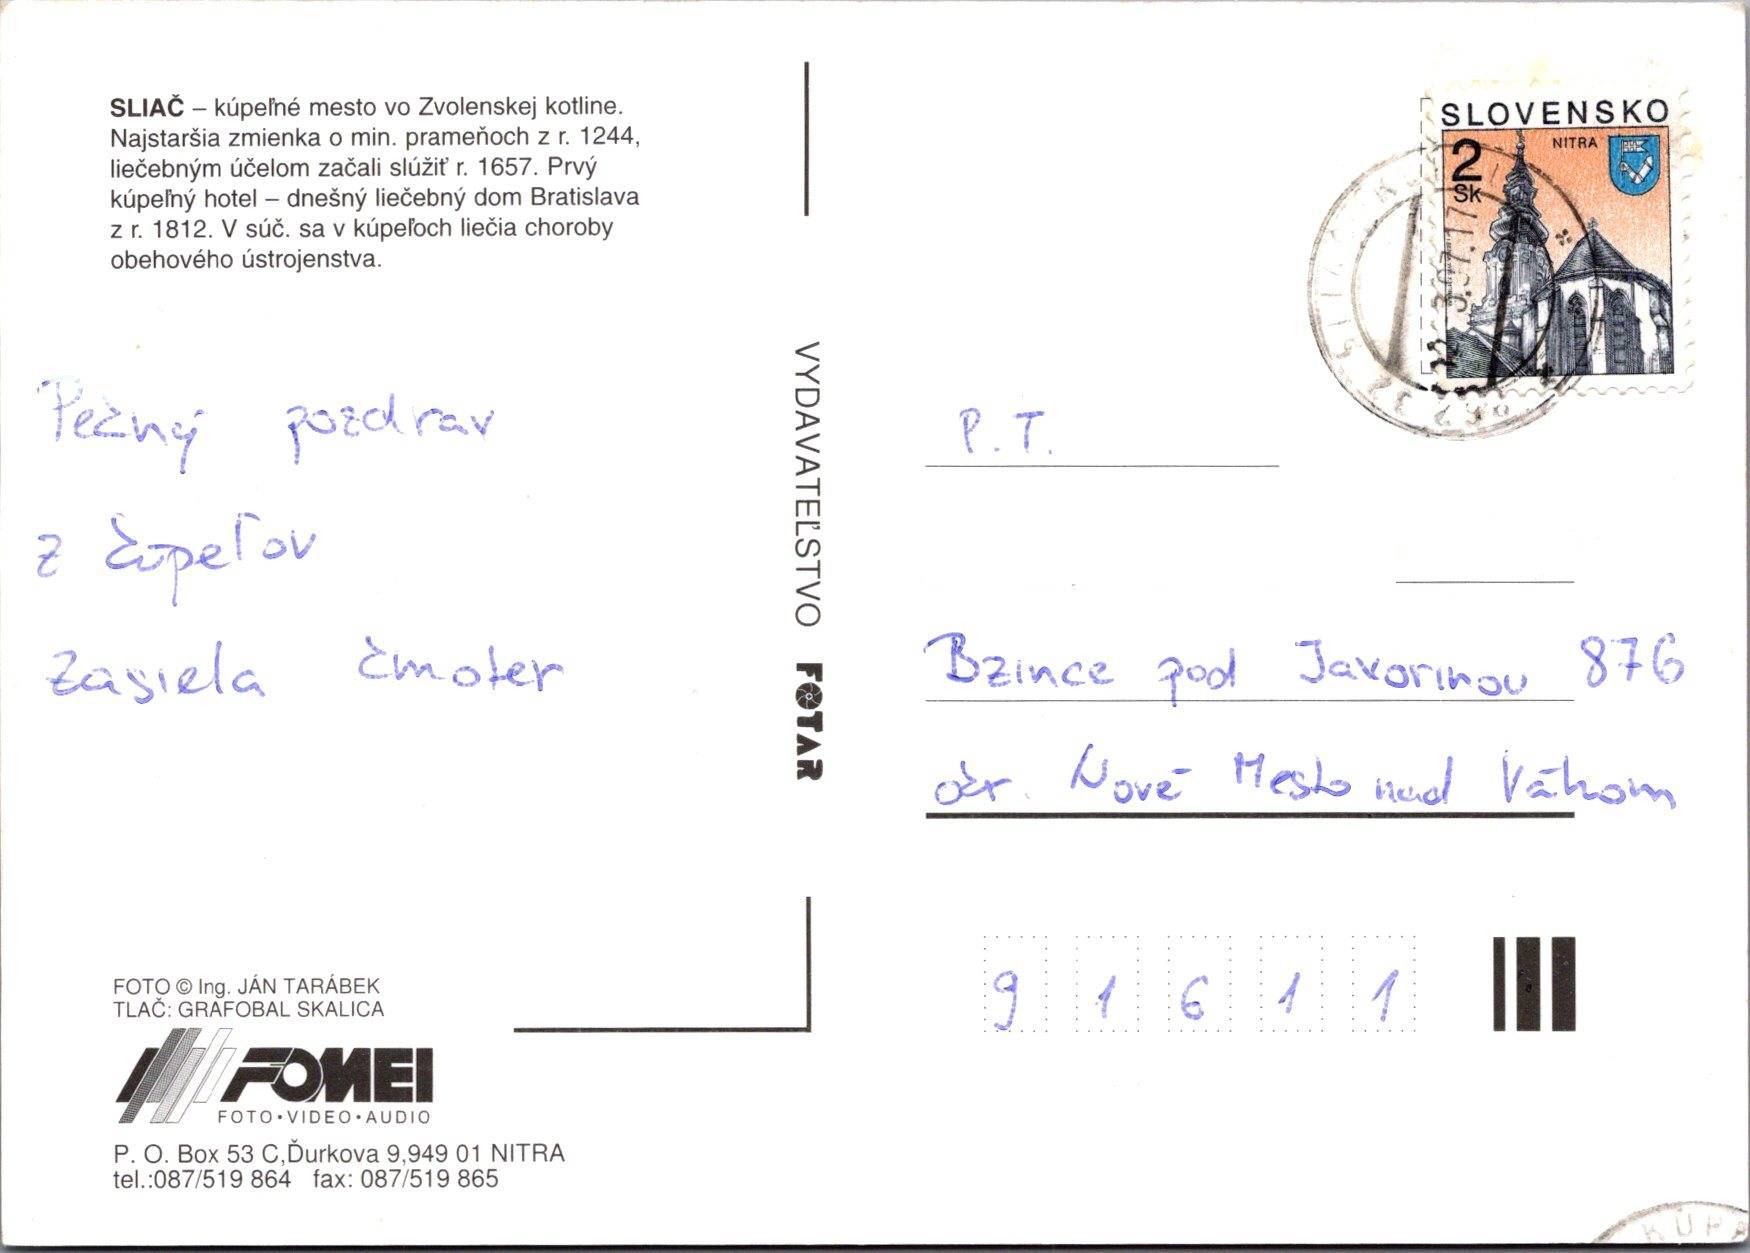 SLIAČ – kúpeľné mesto vo Zvolenskej kotline.
Najstaršia zmienka o min. prameňoch z r. 1244,
liečebným účelom začali slúžiť r. 1657. Prvý
kúpeľný hotel – dnešný liečebný dom Bratislava
z r. 1812. V súč. sa v kúpeľoch liečia choroby
obehového ústrojenstva.
Pečný pozdrav
z čúpeľov
zasiela čmoter
FOTO © Ing. JÁN TARÁBEK
TLAČ: GRAFOBAL SKALICA
FOMEI
FOTO•VIDEO•AUDIO
P. O. Box 53 C,Ďurkova 9,949 01 NITRA
tel.:087/519 864 fax: 087/519 865
VYDAVATEĽSTVO FOTAR
SLOVENSKO
NITRA
2
Sk
P. T.
Bzince pod Javorinou 876
okr. Nové Mesto nad Váhom
91611
KÚPA